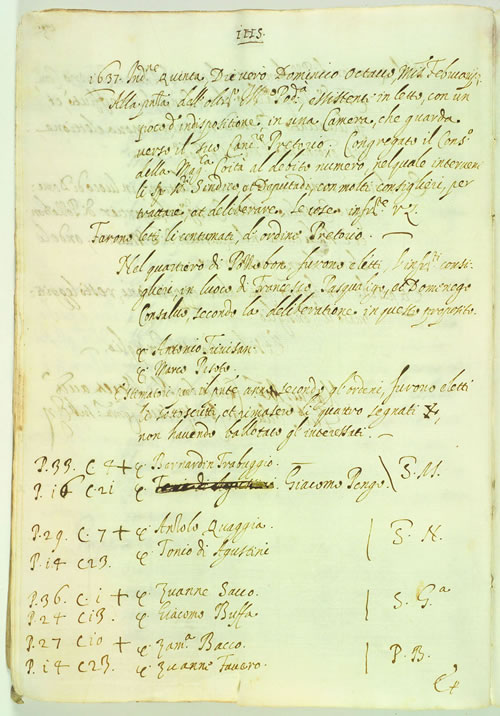 IIIS.
1637. Ind.ne Quinta, Die vero Dominico octavo, Mens. Februarij.
Alla pntia dell'Ill.mo Pod.a, esistente in letto, con un
poco d'indispositione, in una Camera, che guarda
verso il suo Canc.e Pretorio, Congregato il Cons.o
della Mag.ca Co.ità al debito numero, nel quale interven
li SS.ri Sindico, et Deputado, con molti consiglieri, per
trattar, et deliberare, le cose infr.te vz.
Furono letti li contumati, d'ordine Pretorio. —
Nel quartiero di furono eletti, l'infr.ti consi-
glieri, in luoco di Pasqualigo, et Domenego
Consalvo, secondo la deliberatione in questo proposito.
Antonio Trivisan.
Marco Pesoto.
Estimatori per il pnte anno secondo gl'ordeni, furono eletti
li sotoscritti, et rimasero li quattro segnati +,
non havendo ballotato gl'interessati. —
P. 33. C. 4 + Bernardin Frabiggio.
P. 16 C. 21 Giacomo Pengo. S. M.
P. 29. C. 7 + Antolo Quaggia.
P. 14 C 23. Tonio di Agustini S. N.
P. 36. C. 1 + Zuanne Sacco.
P. 24 C 13. Giacomo Buffa. S. G.a
P. 27 C 10 + Zam.a Bacco.
P. 14 C 23. Zuanne Favero. P. B.